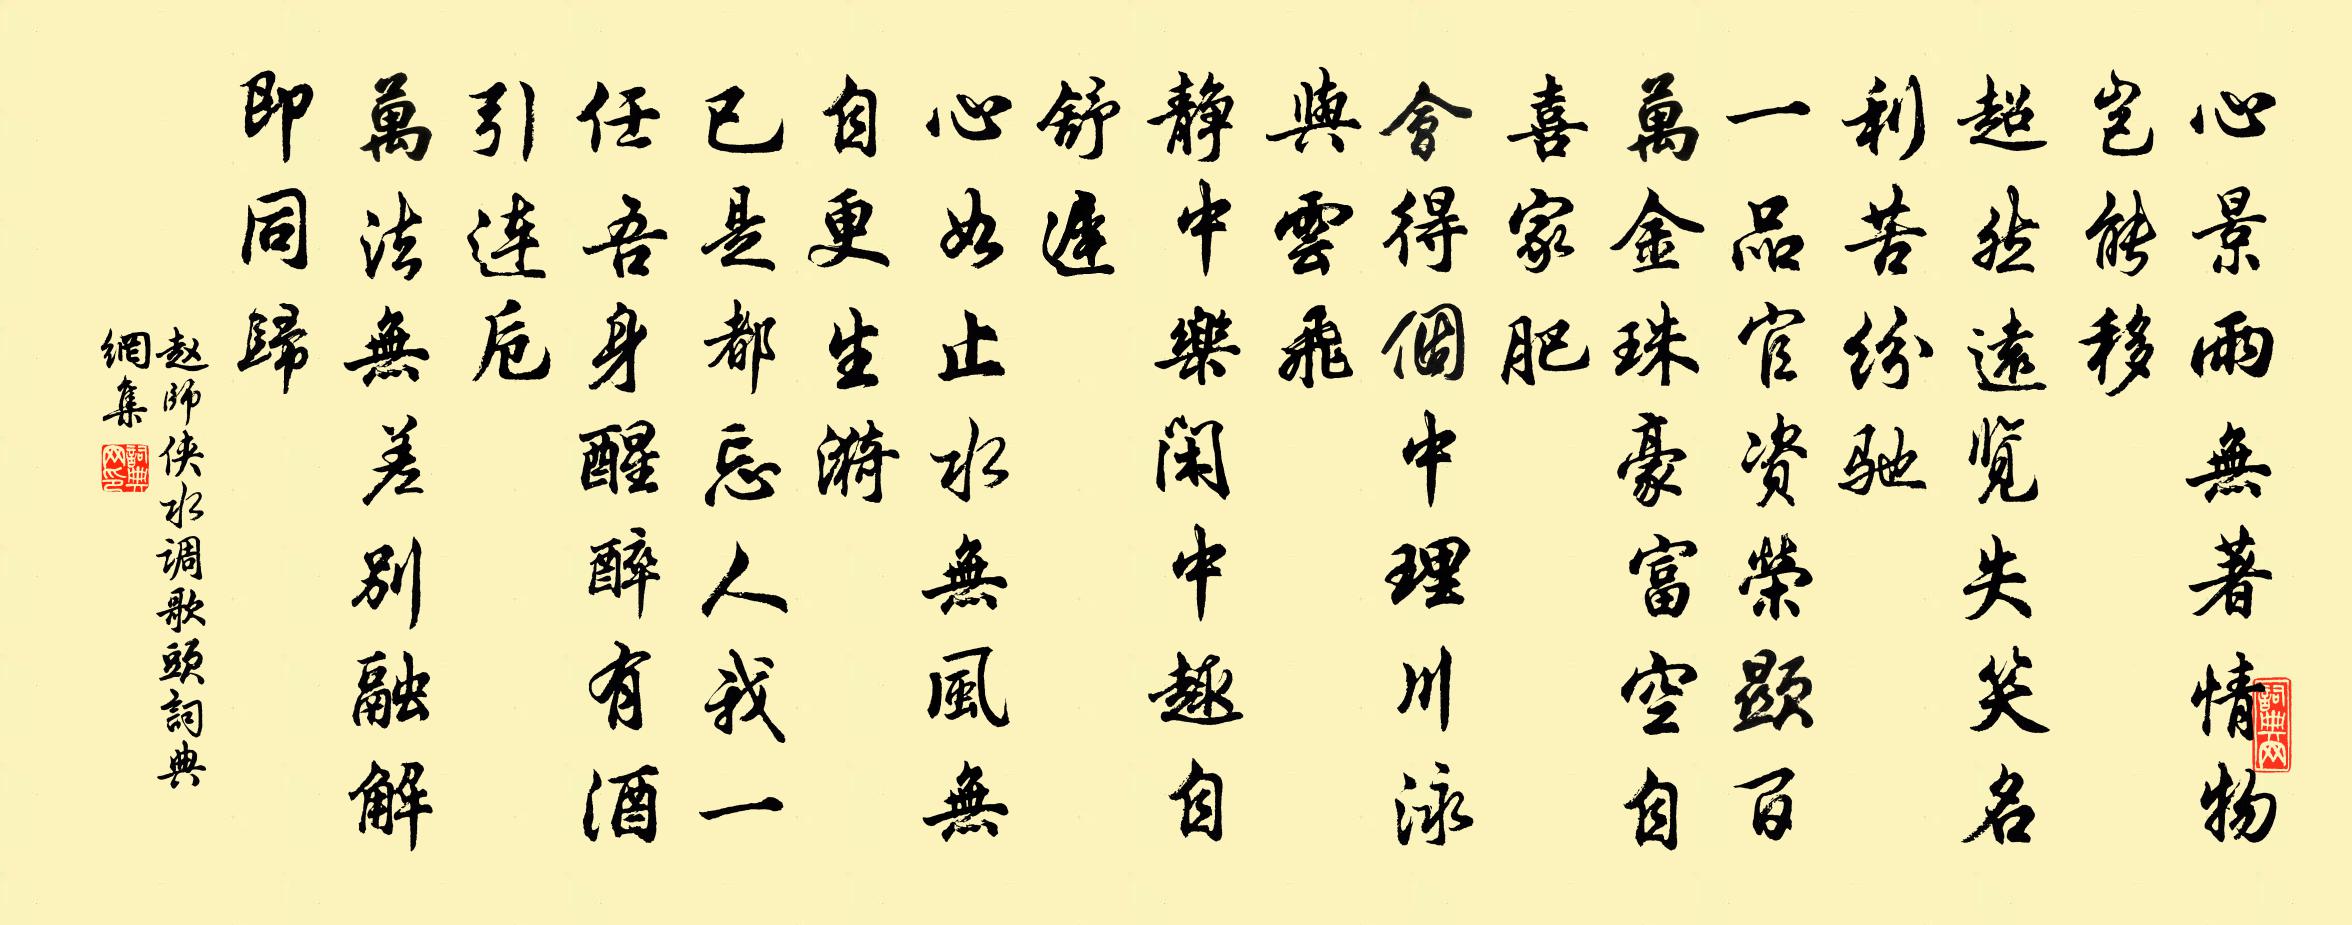 心景兩無著情物
豈能移
超然遠览失笑名
利苦紛馳
一品官资榮顯百
萬金珠豪富空自
喜家肥
會得個中理川泳
與雲飛
靜中樂閑中趣自
舒遲
心如止水無風無
自更生漪
已是都忘人我一
任吾身醒醉有酒
引连卮
萬法無差别融解
即同歸
赵師侠水调歌頭詞典
網集
詞典網
詞典網印